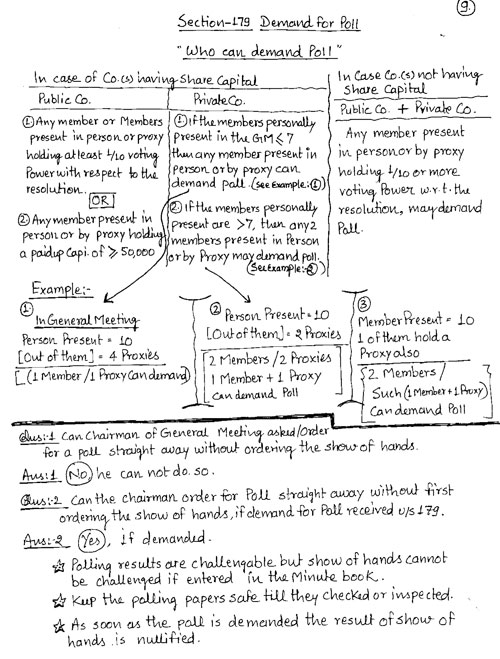 9.
Section-179 Demand for Poll
"Who can demand Poll"
In case of Co.(s) having Share Capital
Public Co.
① Any member or Members
present in person or proxy
holding at least 1/10 voting
Power with respect to the
resolution.
OR
② Any member present in
person or by proxy holding
a paidup Capi. of ≥ 50,000
Private Co.
① If the members personally
Present in the GM ≤ 7
then any member present in
person or by proxy can
demand pall. (See Example:①)
② If the members personally
present are >7, then any 2
members present in Person
or by Proxy may demand poll.
(See Example:-②)
In Case Co.(s) not having
Share Capital
Public Co. + Private Co.
Any member present
in person or by proxy
holding 1/10 or more
voting Power w.r.t. the
resolution, may demand
Poll.
Example:-
①
In General Meeting
Person Present = 10
[Out of them] = 4 Proxies
(1 Member / 1 Proxy Can demand)
②
Person Present = 10
[Out of them] = 2 Proxies
2 Members / 2 Proxies
1 Member + 1 Proxy
Can demand Poll
③
Member Present = 10
1 of them hold a
Proxy also
2 Members /
Such (1 Member + 1 Proxy)
Can demand Poll
Qus:-1 Can Chairman of General Meeting asked/Order
for a poll straight away without ordering the show of hands.
Ans:1 No, he can not do so.
Qus:-2 Can the chairman order for Poll straight away without first
ordering the show of hands, if demand for Poll received u/s 179.
Ans:-2 Yes, if demanded.
☆ Polling results are challengable but show of hands cannot
be challenged if entered in the Minute book.
☆ Kup the polling papers safe till they checked or inspected.
☆ As soon as the pall is demanded the result of show of
hands is nullified.